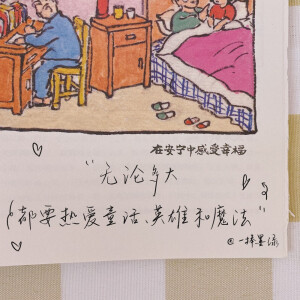 在安宁中感受幸福
"无论多大
都要热爱童话、英雄和魔法"
@一棒墨绿